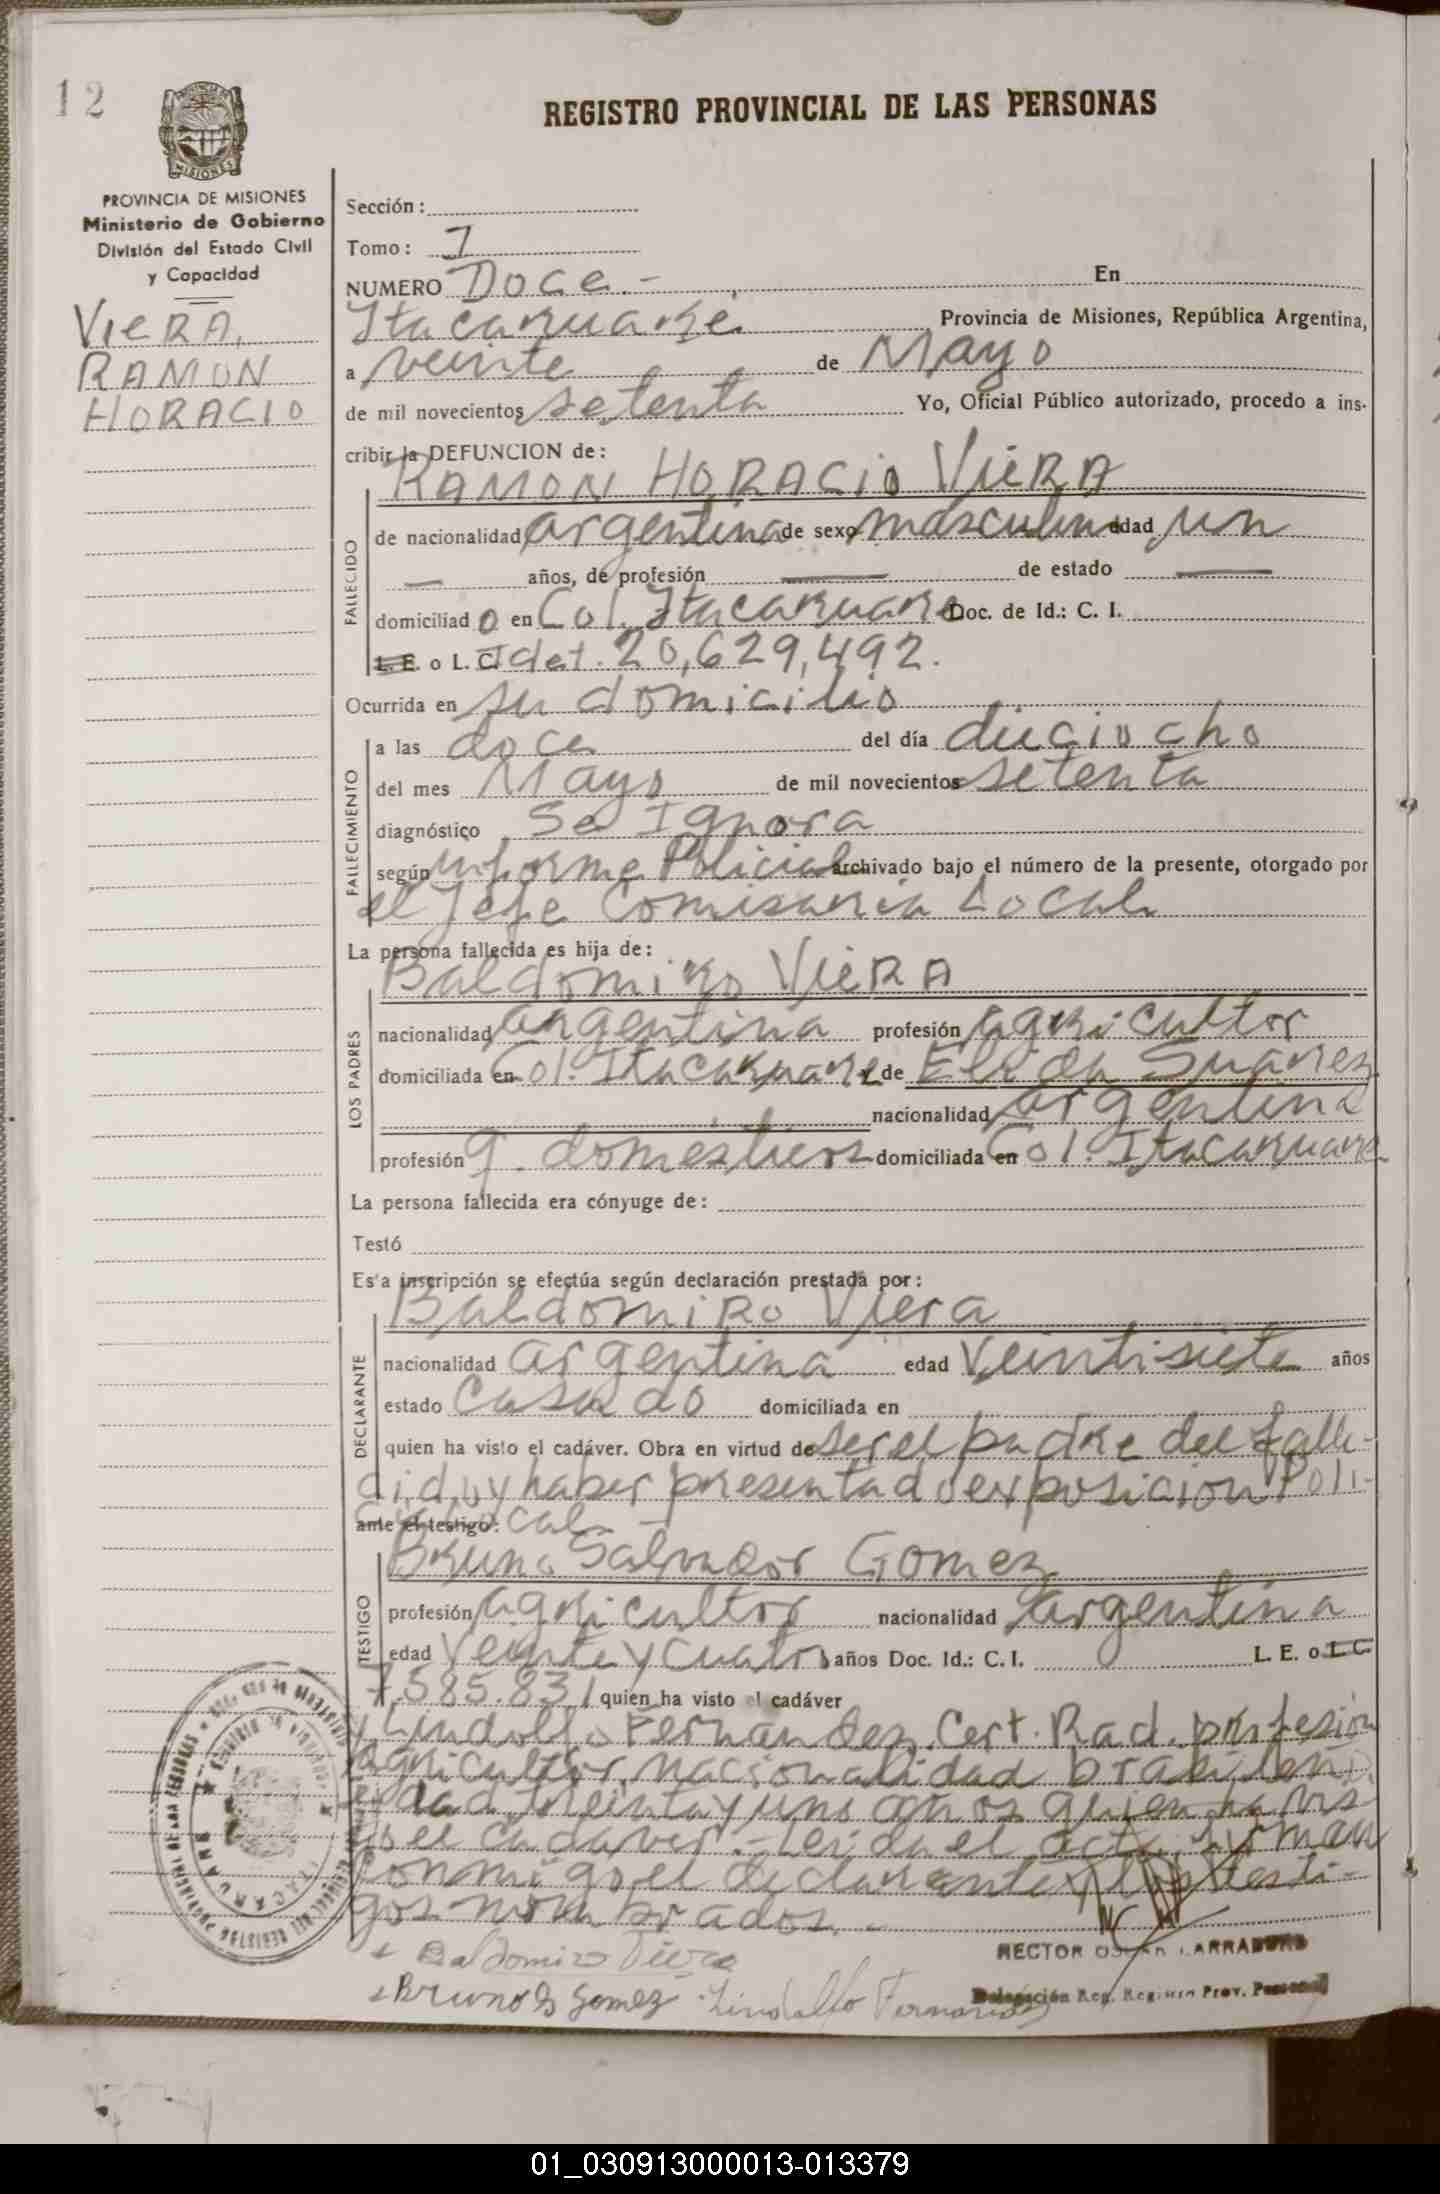 12
PROVINCIA DE MISIONES
Ministerio de Gobierno
División del Estado Civil
y Capacidad
VIERA,
RAMON
HORACIO
REGISTRO PROVINCIAL DE LAS PERSONAS
Sección:
Tomo: I
NUMERO Doce.- En
Itacaruaré. Provincia de Misiones, República Argentina,
a veinte de Mayo
de mil novecientos setenta Yo, Oficial Público autorizado, procedo a ins-
cribir la DEFUNCION de:
RAMON HORACIO VIERA
FALLECIDO
de nacionalidad argentina de sexo masculino edad un
— años, de profesión — de estado —
domiciliado en Col. Itacaruare Doc. de Id.: C. I.
L. E. o L. C. Idet. 20,629,492.
Ocurrida en su domicilio
FALLECIMIENTO
a las doce del día dieciocho
del mes Mayo de mil novecientos setenta
diagnóstico Se Ignora
según informe Policial archivado bajo el número de la presente, otorgado por
el Jefe Comisaria Local
La persona fallecida es hija de:
Baldomiro VIERA
LOS PADRES
nacionalidad argentina profesión agricultor
domiciliada en Col. Itacaruare y de Elida Suarez
nacionalidad argentina
profesión q. domésticos domiciliada en Col. Itacaruare
La persona fallecida era cónyuge de:
Testó
Esta inscripción se efectúa según declaración prestada por:
Baldomiro Viera
DECLARANTE
nacionalidad argentina edad veintisiete años
estado Casado domiciliada en
quien ha visto el cadáver. Obra en virtud de ser el padre del falle-
cido y haber presentado exposicion Poli-
cial Local
ante el testigo:
Bruno Salvador Gomez
TESTIGO
profesión agricultor nacionalidad argentina
edad Veinte y cuatro años Doc. Id.: C. I. L. E. o L C
7.585.831 quien ha visto el cadáver
y Lindolfo Fernandez. Cert. Rad. profesion
agricultor, nacionalidad brasileña
edad treinta y uno años quien ha vis-
to el cadaver.- Leida el acta, firman
conmigo el declarante y los testi-
gos nombrados.-
Baldomiro Viera
Bruno S Gomez Lindolfo Fernandez
HECTOR OSCAR LARRABURU
Delegación Reg. Registro Prov. Personas
ITACARUARE
01_030913000013-013379